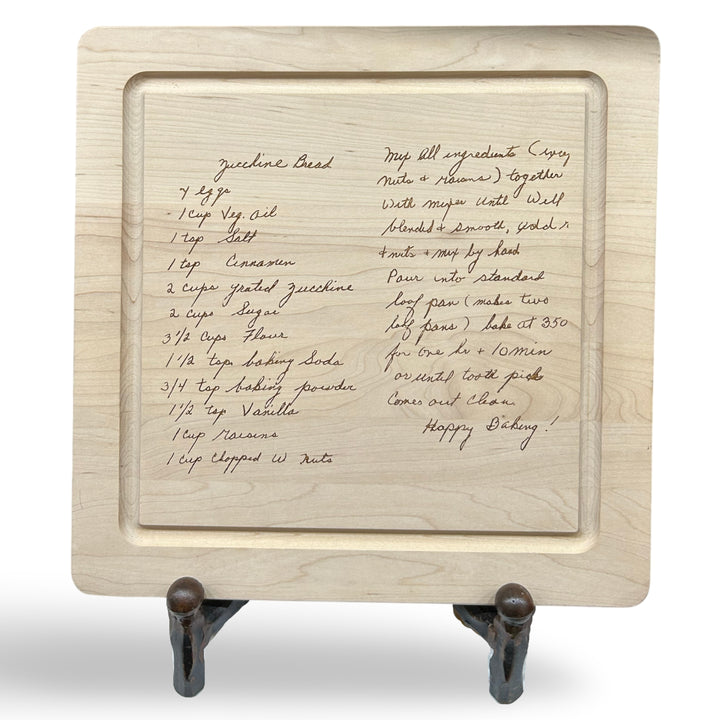 Zucchine Bread
4 eggs
1 cup Veg. oil
1 tsp Salt
1 tsp Cinnamon
2 cups grated Zucchine
2 cups Sugar
3 1/2 cups Flour
1 1/2 tsp. baking Soda
3/4 tsp baking powder
1 1/2 tsp Vanilla
1 cup raisins
1 cup Chopped W nuts
Mix All ingredients (
nuts + raisins) together
With mixer Until Well
blended + smooth,
+ nuts + mix by hand
Pour into standard
loaf pan (makes two
loaf pans) bake at 350
for one hr + 10 min
or until tooth pick
Comes out Clean.
Happy Baking!